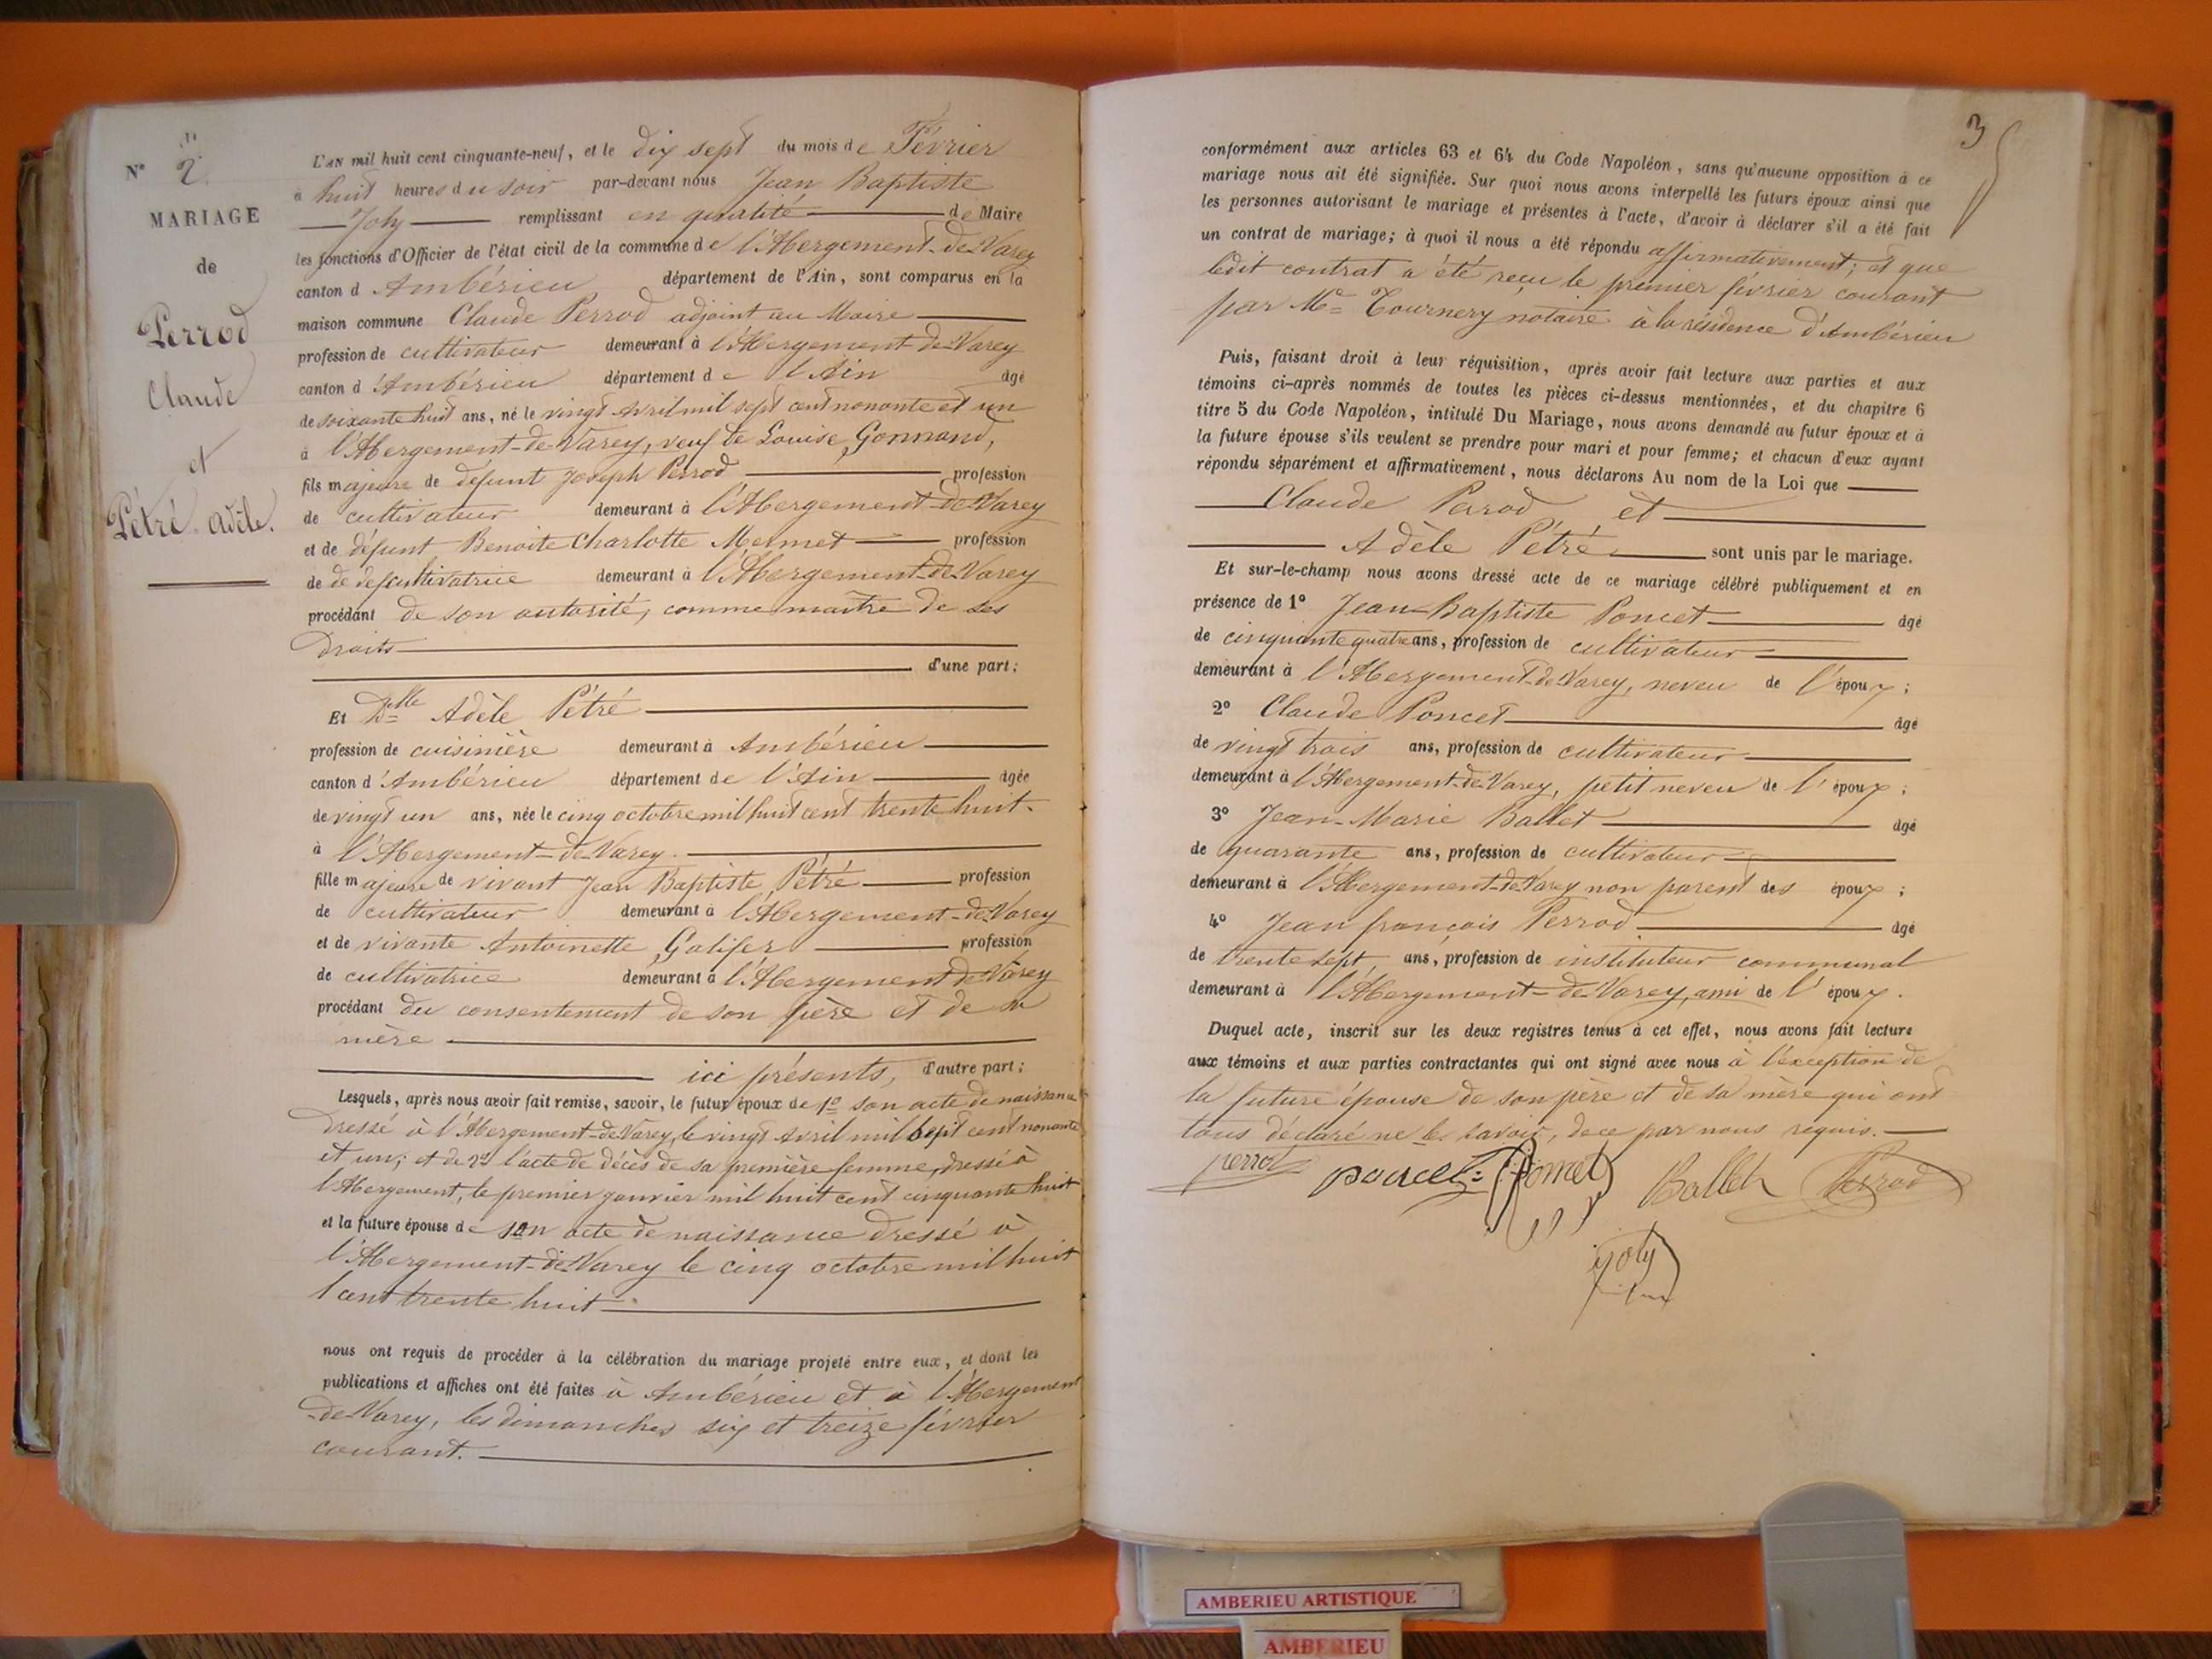 N° 2
MARIAGE
de
Perrod
Claude
et
Pétré Adèle.
L'AN mil huit cent cinquante-neuf, et le dix sept du mois de Février
à huit heures du soir par-devant nous Jean Baptiste
Joly remplissant en qualité de Maire
les fonctions d'Officier de l'état civil de la commune de l'Abergement-de-Varey
canton d Ambérieu département de l'Ain, sont comparus en la
maison commune Claude Perrod adjoint au Maire
profession de cultivateur demeurant à l'Abergement-de-Varey
canton d'Ambérieu département de l'Ain âgé
de soixante huit ans, né le vingt Avril mil sept cent nonante et un
à l'Abergement-de-Varey, veuf de Louise Gonnand,
fils majeure de défunt Joseph Perrod profession
de cultivateur demeurant à l'Abergement-de-Varey
et de défunt Benoite Charlotte Mermet profession
de cultivatrice demeurant à l'Abergement-de-Varey
procédant de son autorité, comme maître de ses
droits
d'une part;
Et Dlle Adèle Pétré
profession de cuisinière demeurant à Ambérieu
canton d'Ambérieu département de l'Ain âgée
de vingt un ans, née le cinq octobre mil huit cent trente huit.
à l'Abergement-de-Varey.
fille majeure de vivant Jean Baptiste Pétré profession
de cultivateur demeurant à l'Abergement-de-Varey
et de vivante Antoinette Galifer profession
de cultivatrice demeurant à l'Abergement-de-Varey
procédant du consentement de son père et de sa
mère
ici présents, d'autre part;
Lesquels, après nous avoir fait remise, savoir, le futur époux de 1° son acte de naissance
dressé à l'Abergement-de-Varey, le vingt Avril mil sept cent nonante
et un; et de 2° l'acte de décès de sa première femme, dressé à
l'Abergement, le premier janvier mil huit cent cinquante huit
et la future épouse de son acte de naissance dressé à
l'Abergement-de-Varey le cinq octobre mil huit
cent trente huit
nous ont requis de procéder à la célébration du mariage projeté entre eux, et dont les
publications et affiches ont été faites à Ambérieu et à l'Abergement
-de-Varey, les dimanches six et treize février
courant.
3
conformément aux articles 63 et 64 du Code Napoléon, sans qu'aucune opposition à ce
mariage nous ait été signifiée. Sur quoi nous avons interpellé les futurs époux ainsi que
les personnes autorisant le mariage et présentes à l'acte, d'avoir à déclarer s'il a été fait
un contrat de mariage; à quoi il nous a été répondu affirmativement; et que
ledit contrat a été reçu le premier février courant
par Me Tournery notaire à la résidence d'Ambérieu
Puis, faisant droit à leur réquisition, après avoir fait lecture aux parties et aux
témoins ci-après nommés de toutes les pièces ci-dessus mentionnées, et du chapitre 6
titre 5 du Code Napoléon, intitulé Du Mariage, nous avons demandé au futur époux et à
la future épouse s'ils veulent se prendre pour mari et pour femme; et chacun d'eux ayant
répondu séparément et affirmativement, nous déclarons Au nom de la Loi que
Claude Perrod et
Adèle Pétré sont unis par le mariage.
Et sur-le-champ nous avons dressé acte de ce mariage célébré publiquement et en
présence de 1° Jean-Baptiste Poncet âgé
de cinquante quatre ans, profession de cultivateur
demeurant à l'Abergement-de-Varey, neveu de l'époux;
2° Claude Poncet âgé
de vingt trois ans, profession de cultivateur
demeurant à l'Abergement-de-Varey, petit neveu de l'époux;
3° Jean-Marie Ballet âgé
de quarante ans, profession de cultivateur
demeurant à l'Abergement-de-Varey non parent des époux;
4° Jean françois Perrod âgé
de trente sept ans, profession de instituteur communal
demeurant à l'Abergement-de-Varey, ami de l'époux.
Duquel acte, inscrit sur les deux registres tenus à cet effet, nous avons fait lecture
aux témoins et aux parties contractantes qui ont signé avec nous à l'exception de
la future épouse de son père et de sa mère qui ont
tous déclaré ne le savoir, de ce par nous requis.
perrod poncet Poncet Ballet Perrod
joly
AMBERIEU ARTISTIQUE
AMBERIEU